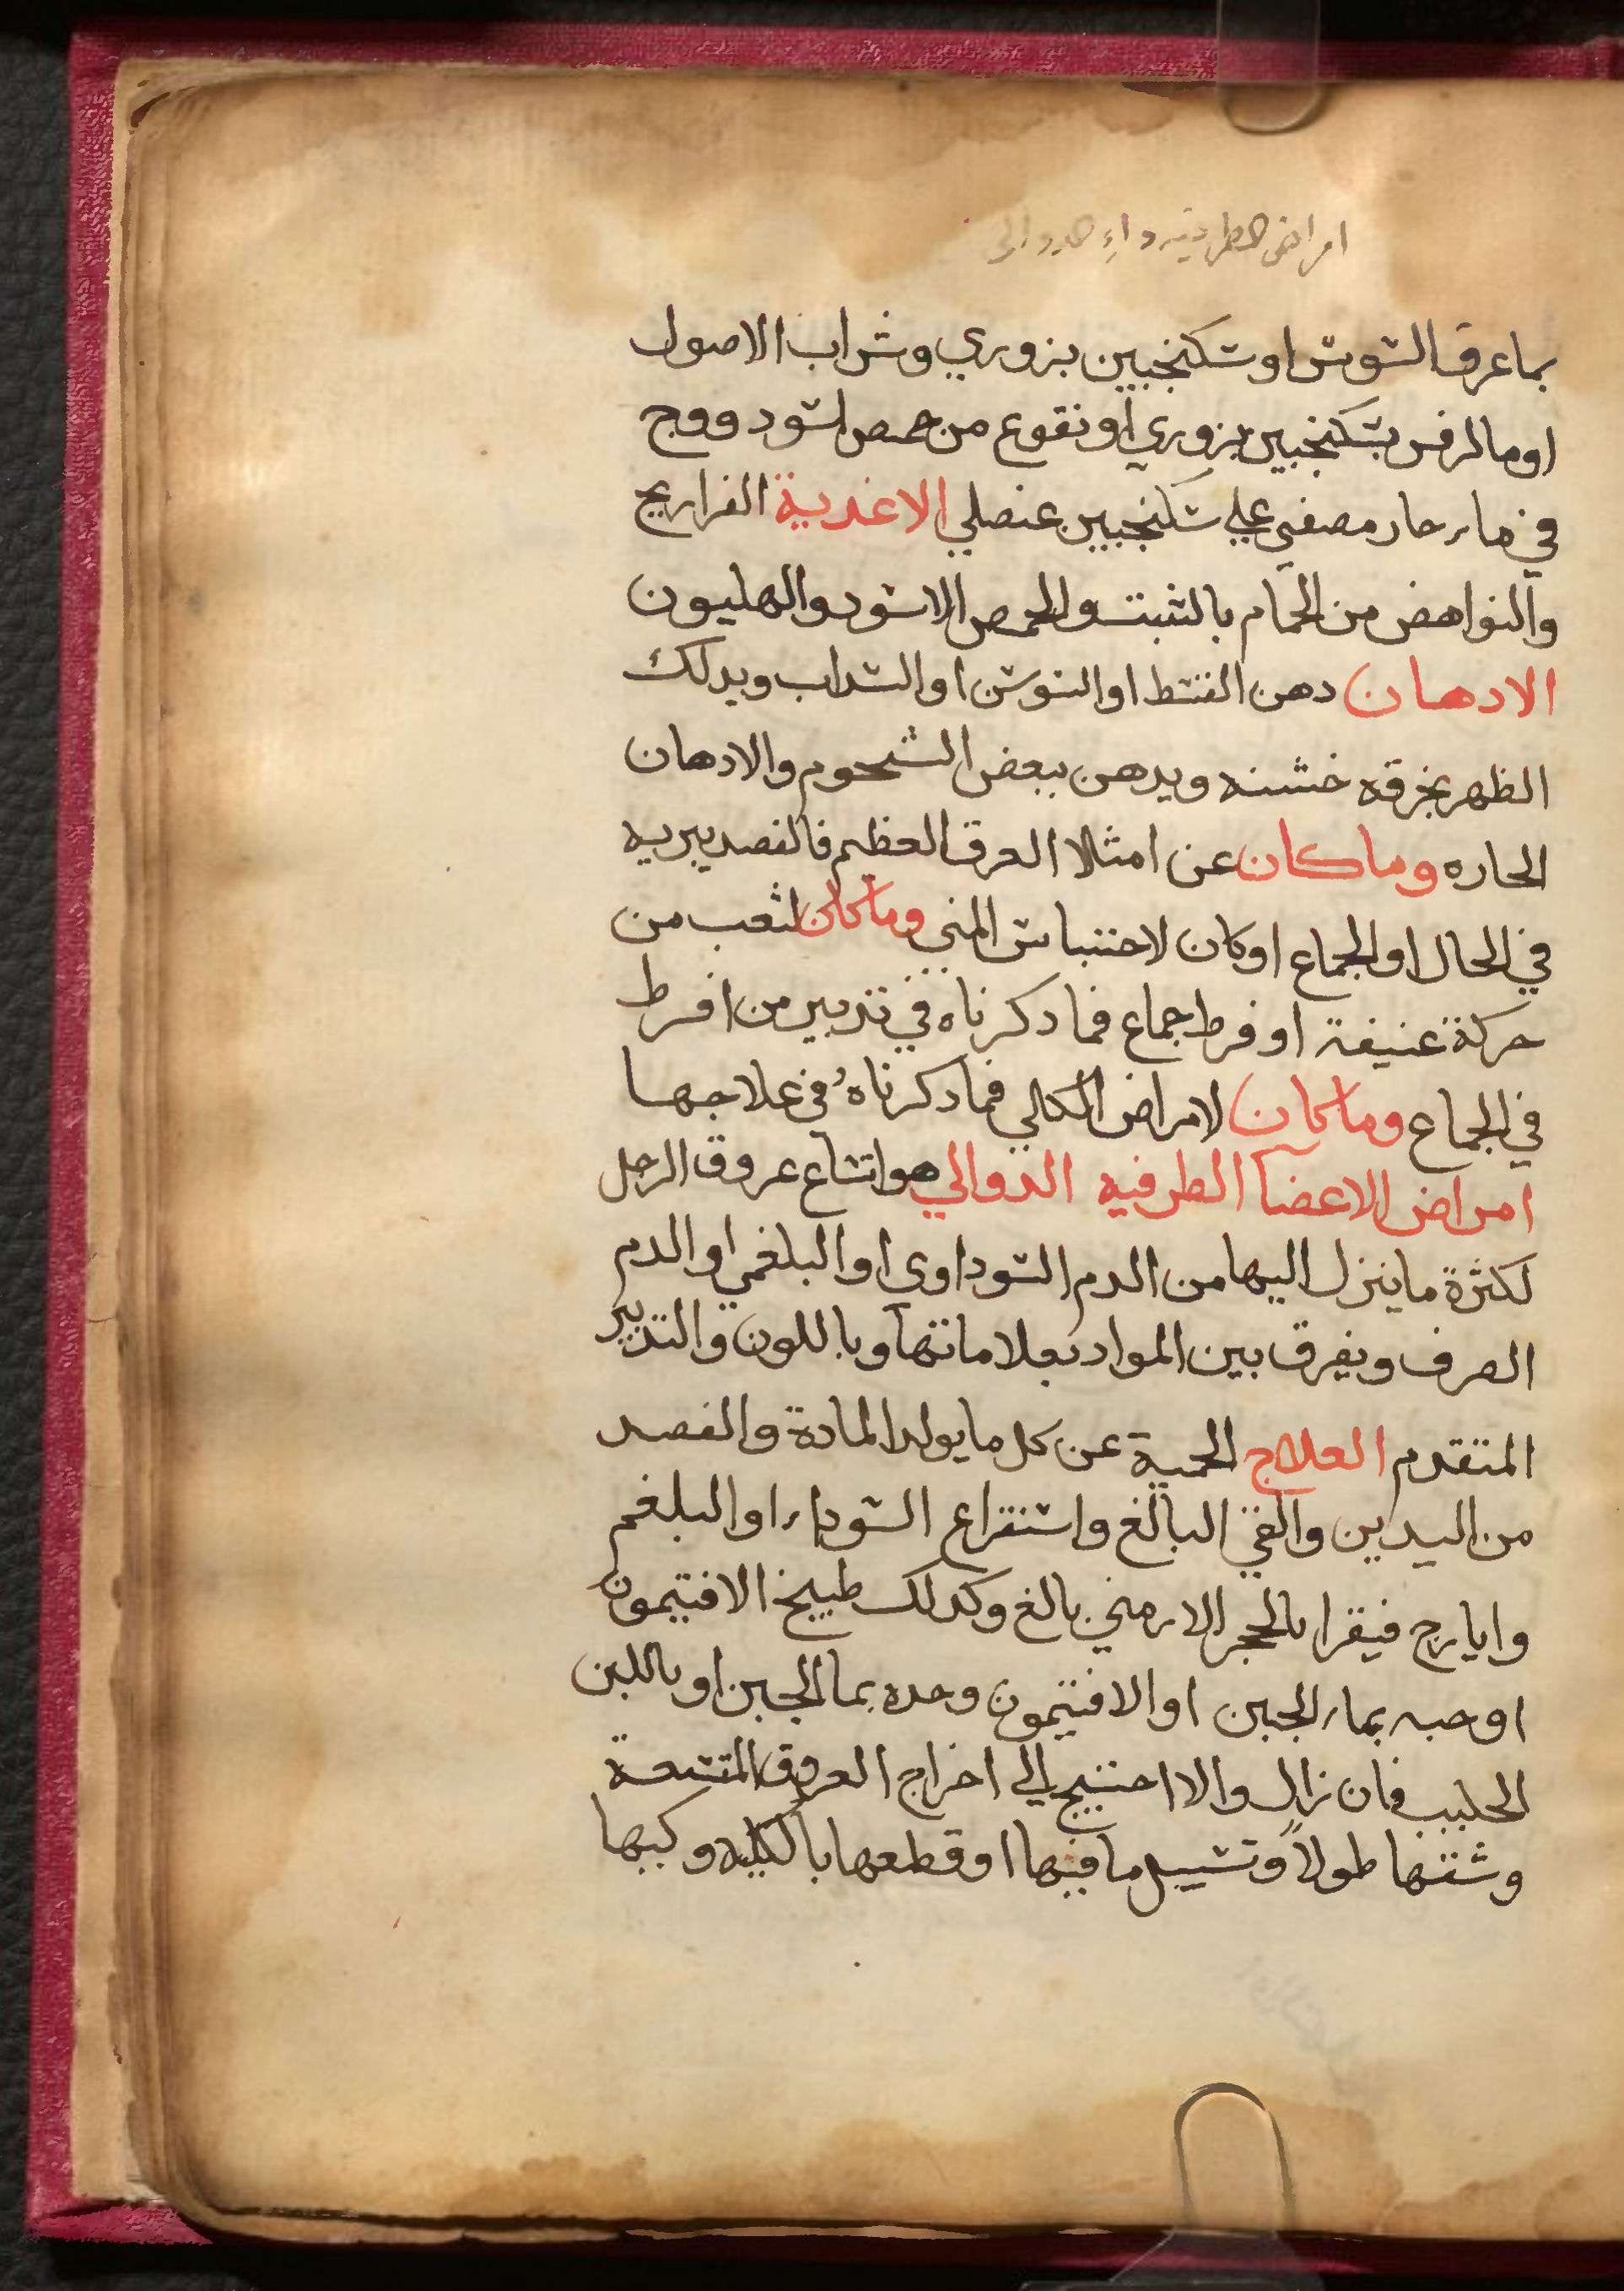 امراض الطرفيه داء الدوالى
بما عرق السوس او سكنجبين بزوري وشراب الاصول
او ما الرفس بسكنجبين بزوري او نقوع من حمص اسود ووج
في ماء حار مصفي علي سكنجبين عنصلي الاغدية الفراريج
والنواهض من الحمام بالشبت والحمص الاسود والهليون
الادهان دهن القسط او السوسن او السداب ويدلك
الظهر بخرقه خشنه ويدهن ببعض الشحوم والادهان
الحاره وما كان عن امتلا العرق العظيم فالفصد يبريه
في الحال او الجماع او كان لاحتباس المني وما كان لتعب من
حركة عنيفة او فرط جماع فما دكرناه في تدبير من افرط
في الجماع وما كان لامراض الكلي فما دكرناه في علاجها
امراض الاعضا الطرفيه الدوالي هو اتساع عروق الرجل
لكثرة ما ينزل اليها من الدم السوداوي او البلغمي او الدم
الصرف ويفرق بين المواد بعلاماتها وباللون والتدبير
المتقدم العلاج الحمية عن كل ما يولد المادة والفصد
من اليدين والقي البالغ واستفراغ السوداء او البلغم
وايارج فيقرا بالحجر الارمني بالغ وكدلك طبيخ الافتيمون
او حبه بماء الجبن او الافتيمون وحده بما الجبن او باللبن
الحليب فان زال والا احتيج الي اخراج العروق المتسعة
وشقها طولاً وتسييل ما فيها او قطعها بالكليه وكيها